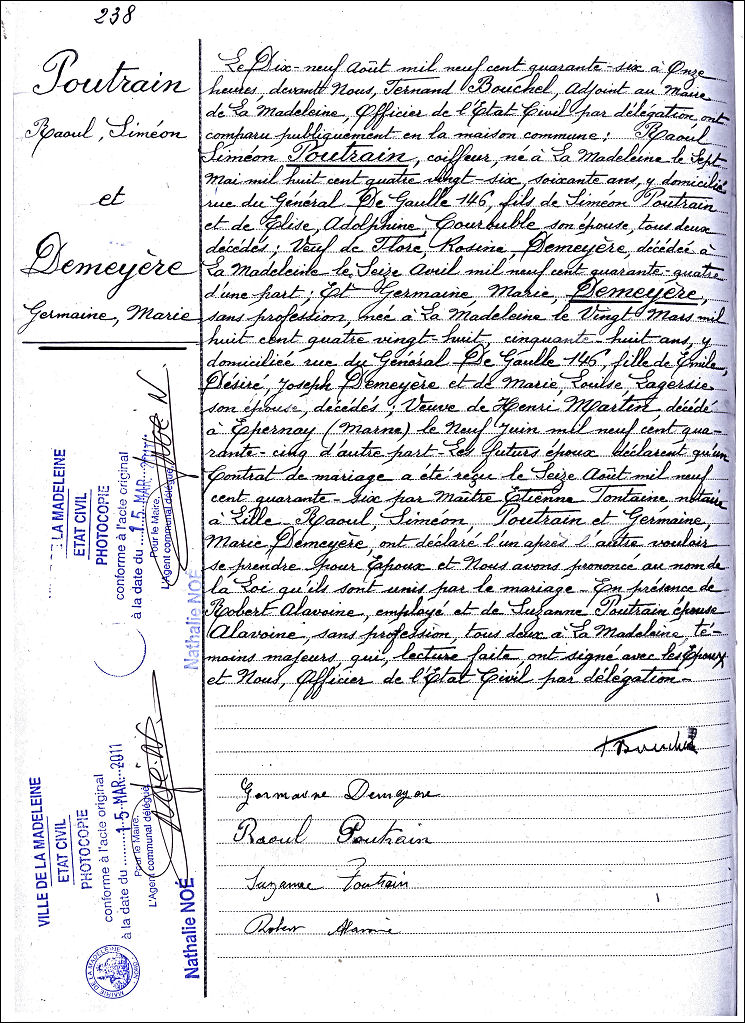 238
Poutrain
Raoul, Siméon
et
Demeyère
Germaine, Marie
Le Dix-neuf Août mil neuf cent quarante-six à Onze
heures devant Nous, Fernand Bouchel, Adjoint au Maire
de La Madeleine, Officier de l'Etat Civil par délégation, ont
comparu publiquement en la maison commune : Raoul
Siméon Poutrain, coiffeur, né à La Madeleine le Sept
Mai mil huit cent quatre vingt-six, soixante ans, y domicilié
rue du Général De Gaulle 146, fils de Siméon Poutrain
et de Elise, Adolphine, Courouble son épouse, tous deux
décédés ; Veuf de Flore, Rosine, Demeyère, décédée à
La Madeleine le Seize Avril mil neuf cent quarante-quatre
d'une part ; Et Germaine, Marie, Demeyère,
sans profession, née à La Madeleine le Vingt Mars mil
huit cent quatre vingt-huit, cinquante-huit ans, y
domiciliée rue du Général De Gaulle 146, fille de Emile,
Désiré, Joseph Demeyère et de Marie, Louise Lagersie
son épouse, décédés ; Veuve de Henri Martin décédé
à Epernay (Marne) le Neuf Juin mil neuf cent qua-
rante-cinq d'autre part - Les futurs époux déclarent qu'un
Contrat de mariage a été reçu le Seize Août mil neuf
cent quarante-six par Maître Etienne Fontaine notaire
à Lille Raoul, Siméon, Poutrain et Germaine,
Marie Demeyère, ont déclaré l'un après l'autre vouloir
se prendre pour Epoux et Nous avons prononcé au nom de
la Loi qu'ils sont unis par le mariage - En présence de
Robert Alavoine, employé et de Suzanne Poutrain épouse
Alavoine, sans profession, tous deux à La Madeleine, té-
moins majeurs qui, lecture faite ont signé avec les Epoux
et Nous, Officier de l'Etat Civil par délégation -
Germaine Demeyere
Raoul Poutrain
Suzanne Poutrain
Robert
LA MADELEINE
ETAT CIVIL
PHOTOCOPIE
conforme à l'acte original
à la date du 15 MAR. 2011
Pour le Maire,
L'Agent communal délégué,
Nathalie NOÉ
VILLE DE LA MADELEINE
ETAT CIVIL
PHOTOCOPIE
conforme à l'acte original
à la date du 15 MAR. 2011
Pour le Maire,
L'Agent communal délégué,
Nathalie NOÉ